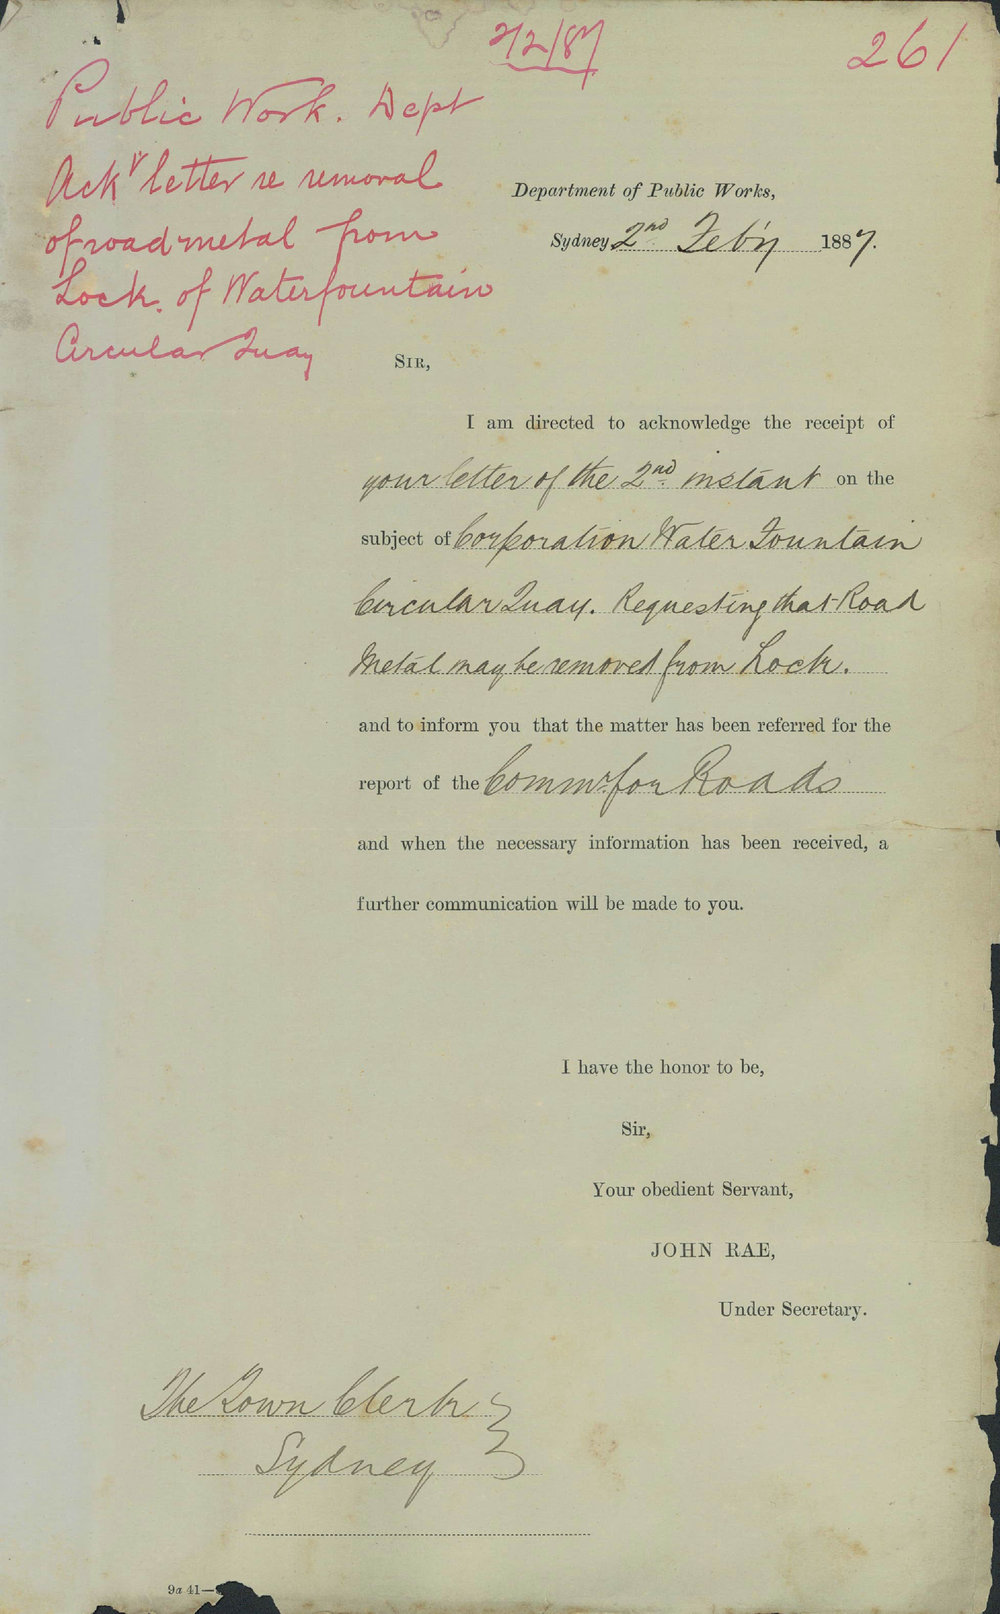 2/2/87
261
Public Work. Dept
Ackr letter re removal
of road metal from
Lock. of Waterfountain
Circular Quay
Department of Public Works,
Sydney 2nd Feb'y 1887.
SIR,
I am directed to acknowledge the receipt of
your letter of the 2nd instant on the
subject of Corporation Water Fountain
Circular Quay. Requesting that Road
Metal may be removed from Lock.
and to inform you that the matter has been referred for the
report of the Commr. for Roads
and when the necessary information has been received, a
further communication will be made to you.
I have the honor to be,
Sir,
Your obedient Servant,
JOHN RAE,
Under Secretary.
The Town Clerk
Sydney
9a 41—